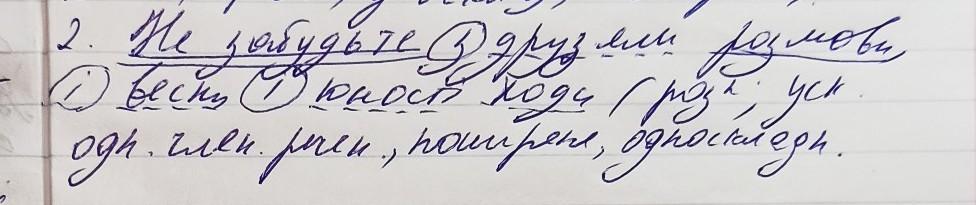 2. Не забудьте з друзями розмови,
і весни і юност ходи (розп; уск.
одн. член. речен., поширене, односкладн.